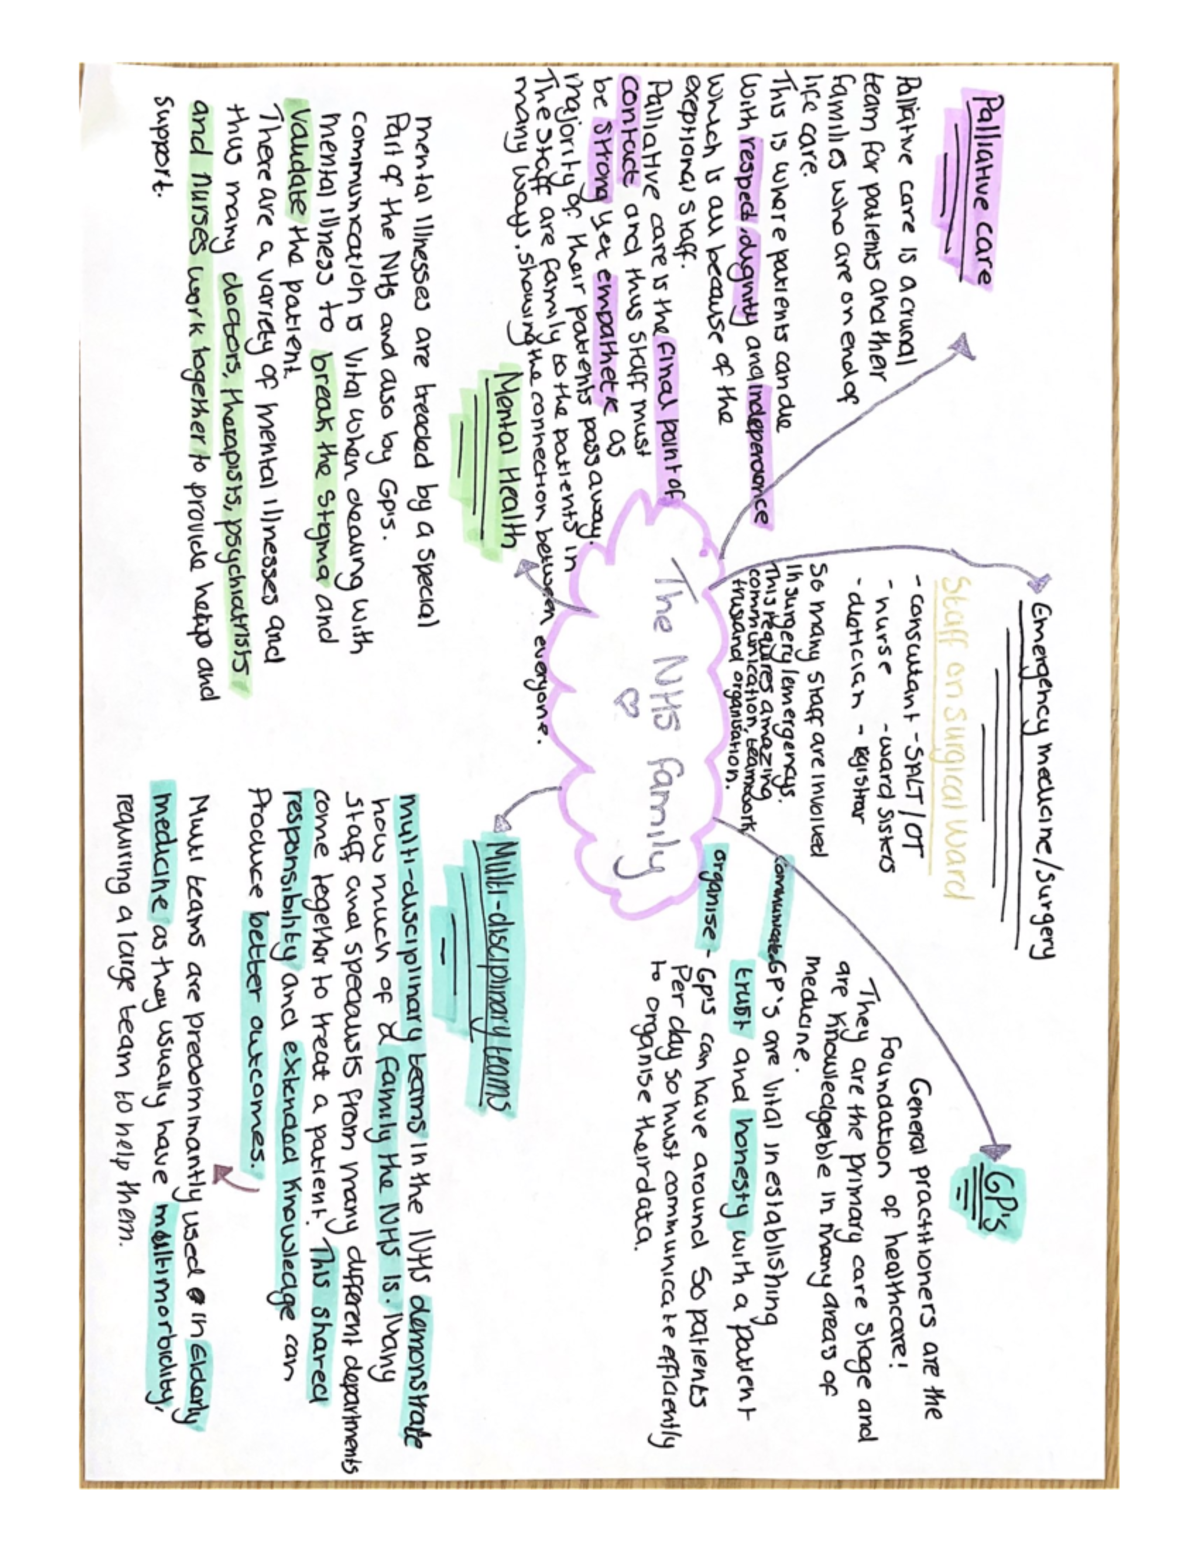 Palliative care
Palliative care is a crucial
team for patients and their
families who are on end of
life care.
This is where patients can die
with respect, dignity and independence
which is all because of the
exeptional staff.
Palliative care is the final point of
contact and thus staff must
be strong yet empathetic as
majority of their patients pass away.
The staff are family to the patients in
many ways. showing the connection between everyone.
Emergency medicine/surgery
Staff on surgical ward
- consultant - SALT/OT
- nurse - ward sisters
- detician - registrar
So many staff are involved
In surgery/emergencys.
This requires amazing
communication, teamwork
trust and organisation.
GP's
General practitioners are the
Foundation of healthcare!
They are the primary care stage and
are knowledgeble in many areas of
medicine.
communicated
GP's are vital in establishing
trust and honesty with a patient
organise - Gp's can have around 50 patients
Per day so must communicate efficiently
to organise their data.
The NHS family
Mental Health
mental illnesses are treated by a special
Part of the NHS and also by Gp's.
communication is vital when dealing with
mental illness to break the stigma and
validate the patient.
There are a variety of mental illnesses and
thus many doctors, therapists, psychiatrists
and nurses work together to provide help and
support.
Multi-disciplinary teams
multi-disciplinary teams in the NHS demonstrate
how much of a family the NHS is. Many
staff and specialists from many different departments
come together to treat a patient. This shared
responsibility and extended knowledge can
Produce better outcomes.
Multi teams are predominantly used in Elderly
medicine as they usually have multimorbidity,
requiring a large team to help them.